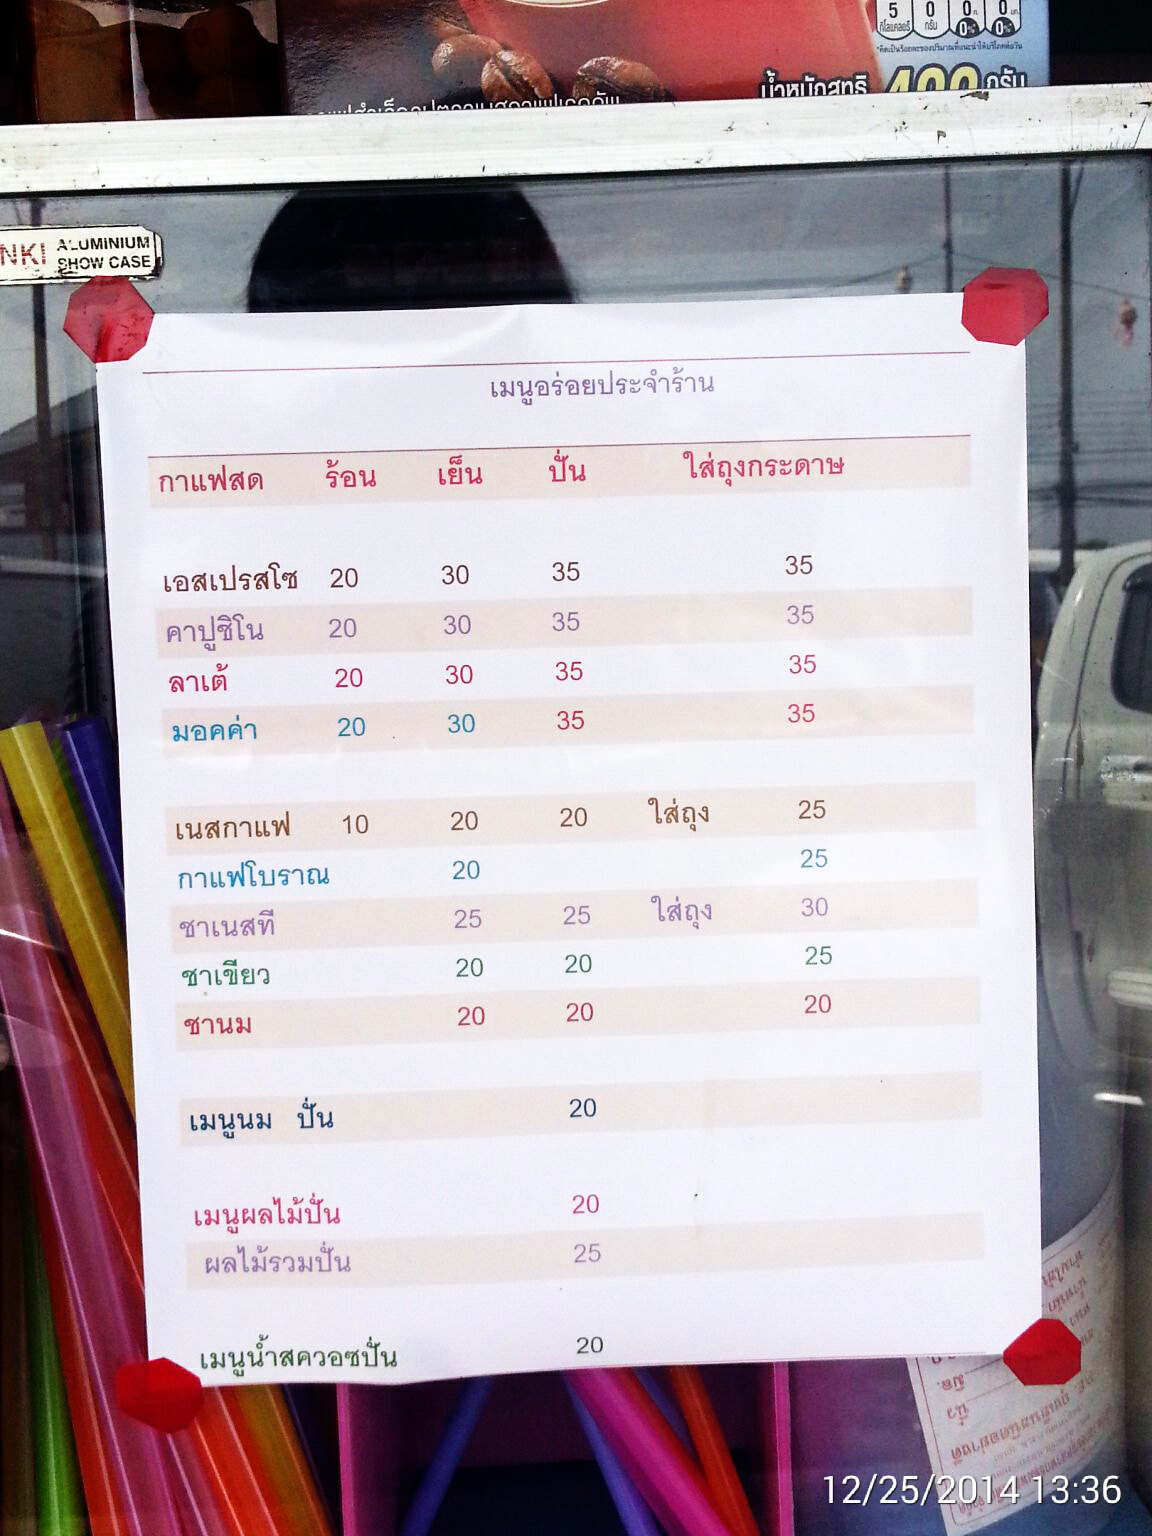 5 0 0 0
กิโลแคลอรี กรัม ก. มก.
0% 0%
น้ำหนักสุทธิ 400 กรัม
NKI ALUMINIUM
SHOW CASE
เมนูอร่อยประจำร้าน
กาแฟสด ร้อน เย็น ปั่น ใส่ถุงกระดาษ
เอสเปรสโซ 20 30 35 35
คาปูชิโน 20 30 35 35
ลาเต้ 20 30 35 35
มอคค่า 20 30 35 35
เนสกาแฟ 10 20 20 ใส่ถุง 25
กาแฟโบราณ 20 25
ชาเนสที 25 25 ใส่ถุง 30
ชาเขียว 20 20 25
ชานม 20 20 20
เมนูนม ปั่น 20
เมนูผลไม้ปั่น 20
ผลไม้รวมปั่น 25
เมนูน้ำสควอซปั่น 20
12/25/2014 13:36